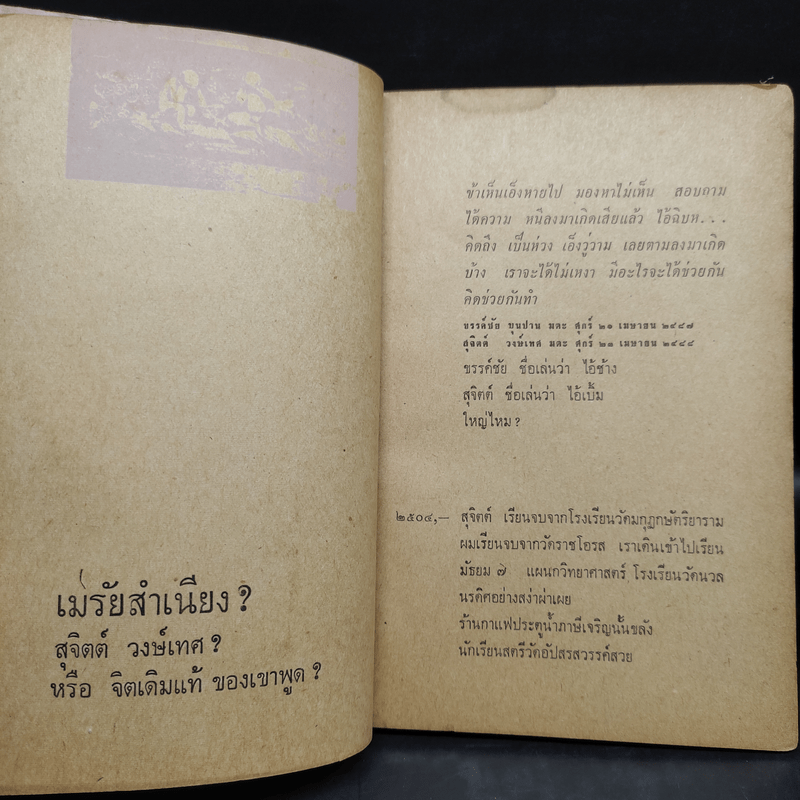 เมรัยสำเนียง?
สุจิตต์ วงษ์เทศ?
หรือ จิตเดิมแท้ ของเขาพูด?
ข้าเห็นเอ็งหายไป มองหาไม่เห็น สอบถาม
ได้ความ หนีลงมาเกิดเสียแล้ว ไอ้ฉิบห...
คิดถึง เป็นห่วง เอ็งวู่วาม เลยตามลงมาเกิด
บ้าง เราจะได้ไม่เหงา มีอะไรจะได้ช่วยกัน
คิดช่วยกันทำ
ขรรค์ชัย บุนปาน มตะ ศุกร์ ๒๑ เมษายน ๒๔๘๗
สุจิตต์ วงษ์เทศ มตะ ศุกร์ ๒๑ เมษายน ๒๔๘๘
ขรรค์ชัย ชื่อเล่นว่า ไอ้ช้าง
สุจิตต์ ชื่อเล่นว่า ไอ้เบิ้ม
ใหญ่ไหม?
๒๕๐๔,— สุจิตต์ เรียนจบจากโรงเรียนวัดมกุฏกษัตริยาราม
ผมเรียนจบจากวัดราชโอรส เราเดินเข้าไปเรียน
มัธยม ๗ แผนกวิทยาศาสตร์ โรงเรียนวัดนวล
นรดิศอย่างสง่าผ่าเผย
ร้านกาแฟประตูน้ำภาษีเจริญนั้นขลัง
นักเรียนสตรีวัดอัปสรสวรรค์สวย